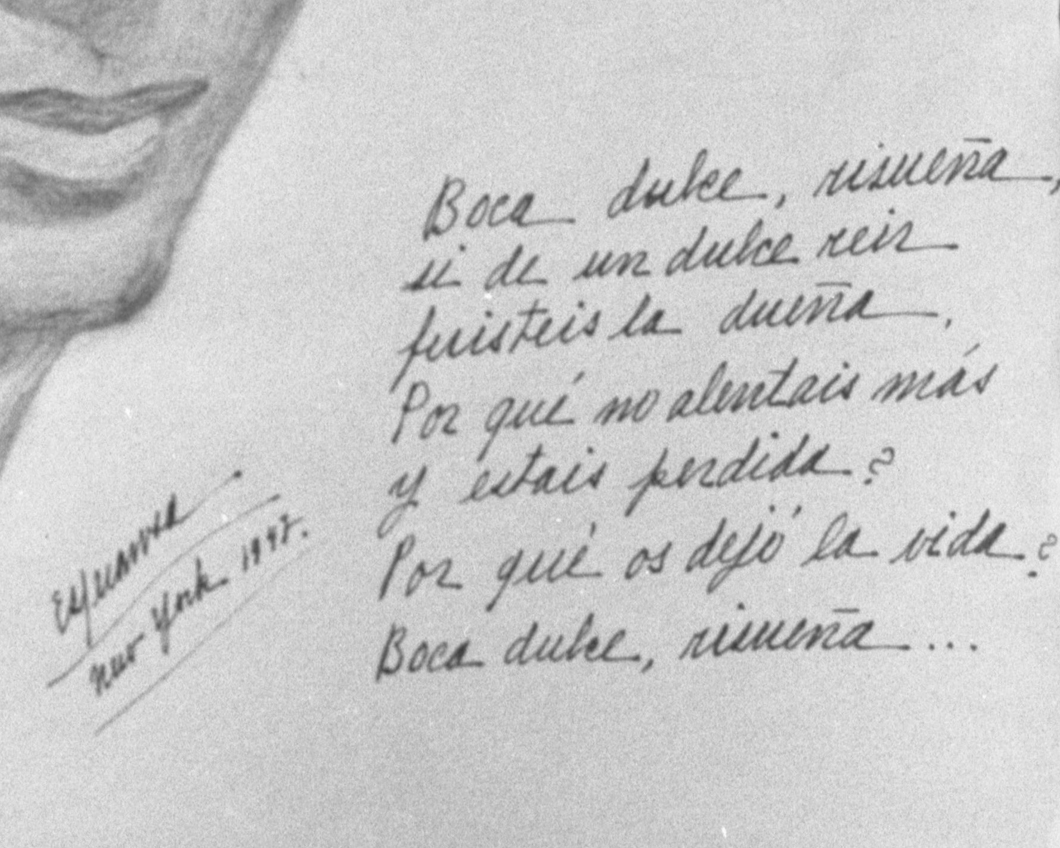 Boca dulce, risueña,
si de un dulce reir
fuisteis la dueña,
Por qué no alentais más
y estais perdida?
Por qué os dejó la vida?
Boca dulce, risueña...
New York 1947.